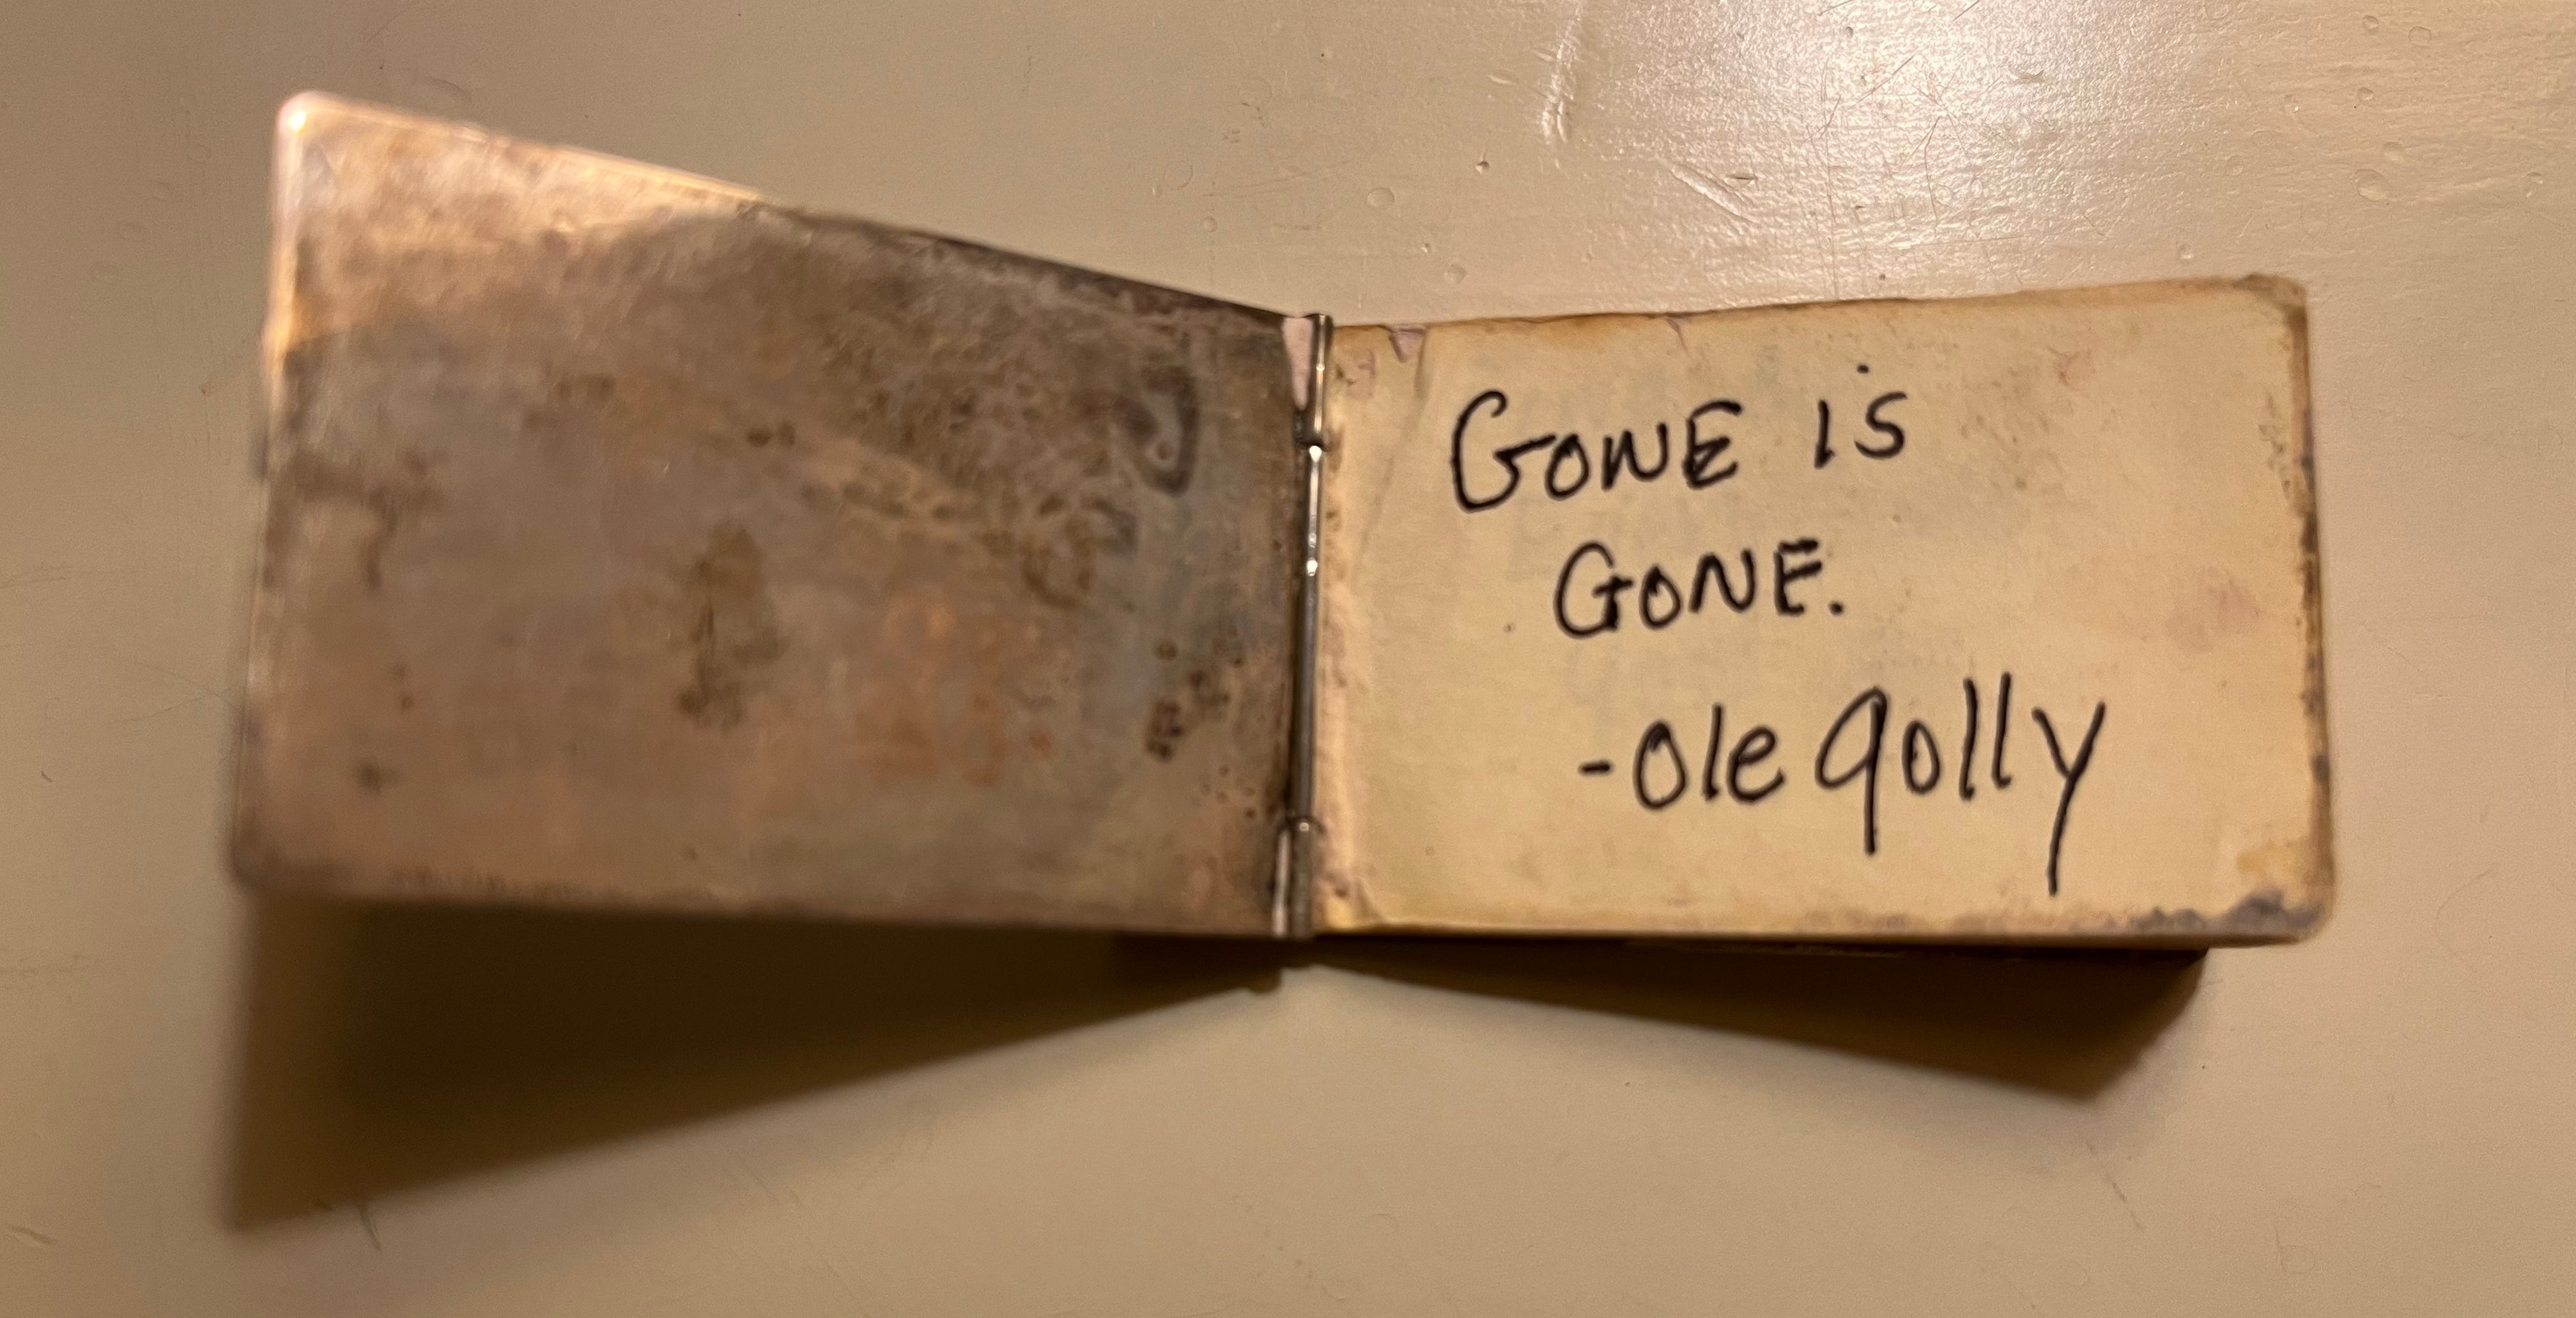 GONE is
GONE.
-Ole golly